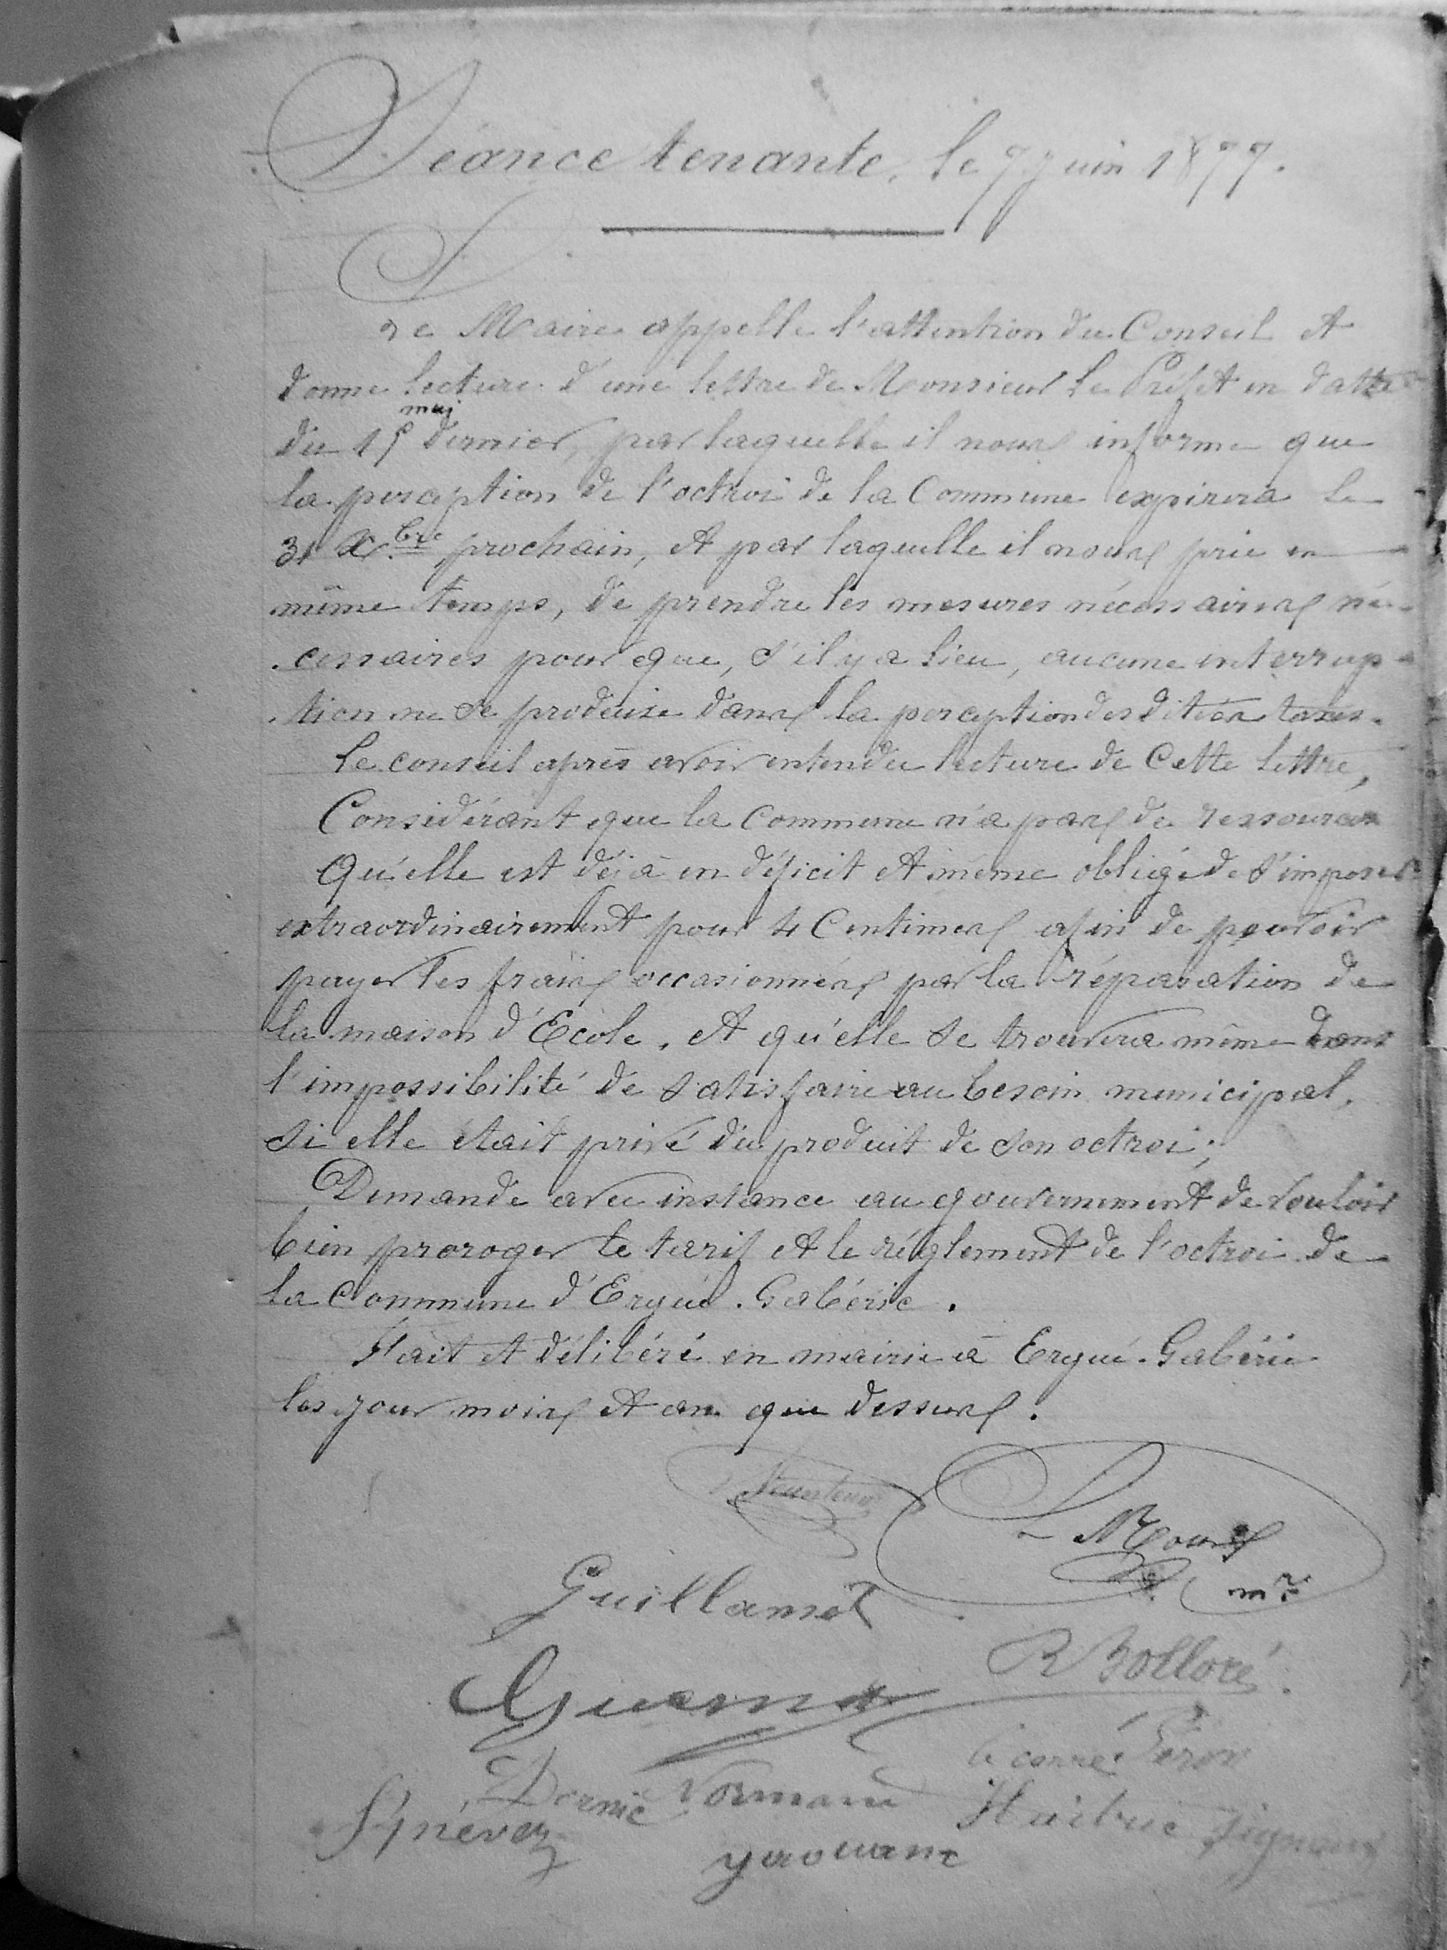 Séance tenante, le 7 juin 1877.
Le Maire appelle l'attention du Conseil et
donne lecture d'une lettre de Monsieur le Préfet en datte
du 15 mai dernier, par laquelle il nous informe que
la perception de l'octroi de la Commune expirera le
31 Xbre prochain, et par laquelle il nous prie en
même temps, de prendre les mesures nécessaires né-
cessaires pour que, s'il y a lieu, aucune interrup-
tion ne se produise dans la perception des dites taxes.
Le conseil après avoir entendu lecture de Cette lettre,
Considérant que la Commune n'a pas de ressources
Qu'elle est déjà en déficit et même obligé de s'imposer
extraordinairement pour 4 Centimes afin de pouvoir
payer les frais occasionnés par la réparation de
la maison d'Ecole. et qu'elle se trouvera même dans
l'impossibilité de satisfaire au besoin municipal,
si elle était privé du produit de son octroi;
Demande avec instance au gouvernement de vouloir
bien proroger le tarif et le réglement de l'octroi de
la Commune d'Ergué-Gabéric.
Fait et délibéré en mairie à Ergué-Gabéric
les jour mois et an que dessus.
Guillamet
R Bolloré
le corré Péron
Dornic Normand
Huitric